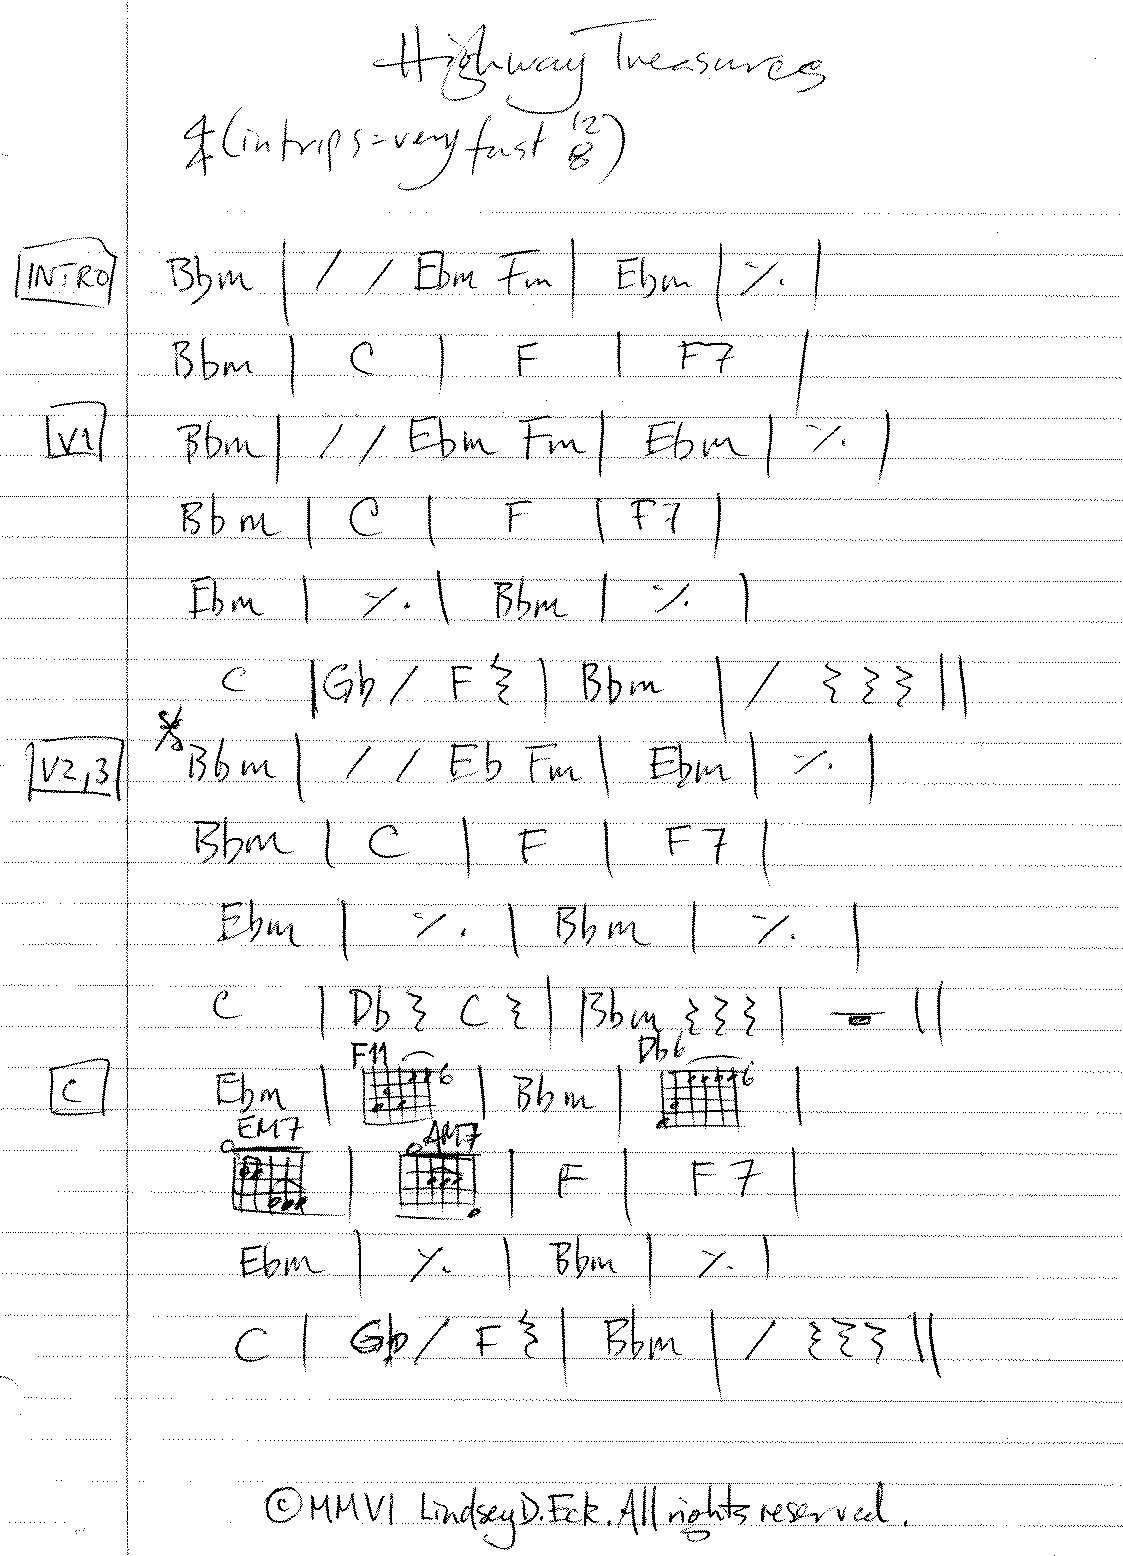 Highway Treasures
4/4 (in trips = very fast 12/8)
INTRO Bbm | / / Ebm Fm | Ebm | ٪ |
Bbm | C | F | F7 |
V1 Bbm | / / Ebm Fm | Ebm | ٪ |
Bbm | C | F | F7 |
Ebm | ٪ | Bbm | ٪ |
C | Gb / F 𝄽 | Bbm | / 𝄽 𝄽 𝄽 ||
𝄋
V2,3 Bbm | / / Eb Fm | Ebm | ٪ |
Bbm | C | F | F7 |
Ebm | ٪ | Bbm | ٪ |
C | Db 𝄽 C 𝄽 | Bbm 𝄽 𝄽 𝄽 | 𝄻 ||
F11 Db6
C Ebm | 6 | Bbm | 6 |
EM7 AM7
| | F | F7 |
Ebm | ٪ | Bbm | ٪ |
C | Gb / F 𝄽 | Bbm | / 𝄽 𝄽 𝄽 ||
©MMVI Lindsey D. Eck. All rights reserved.